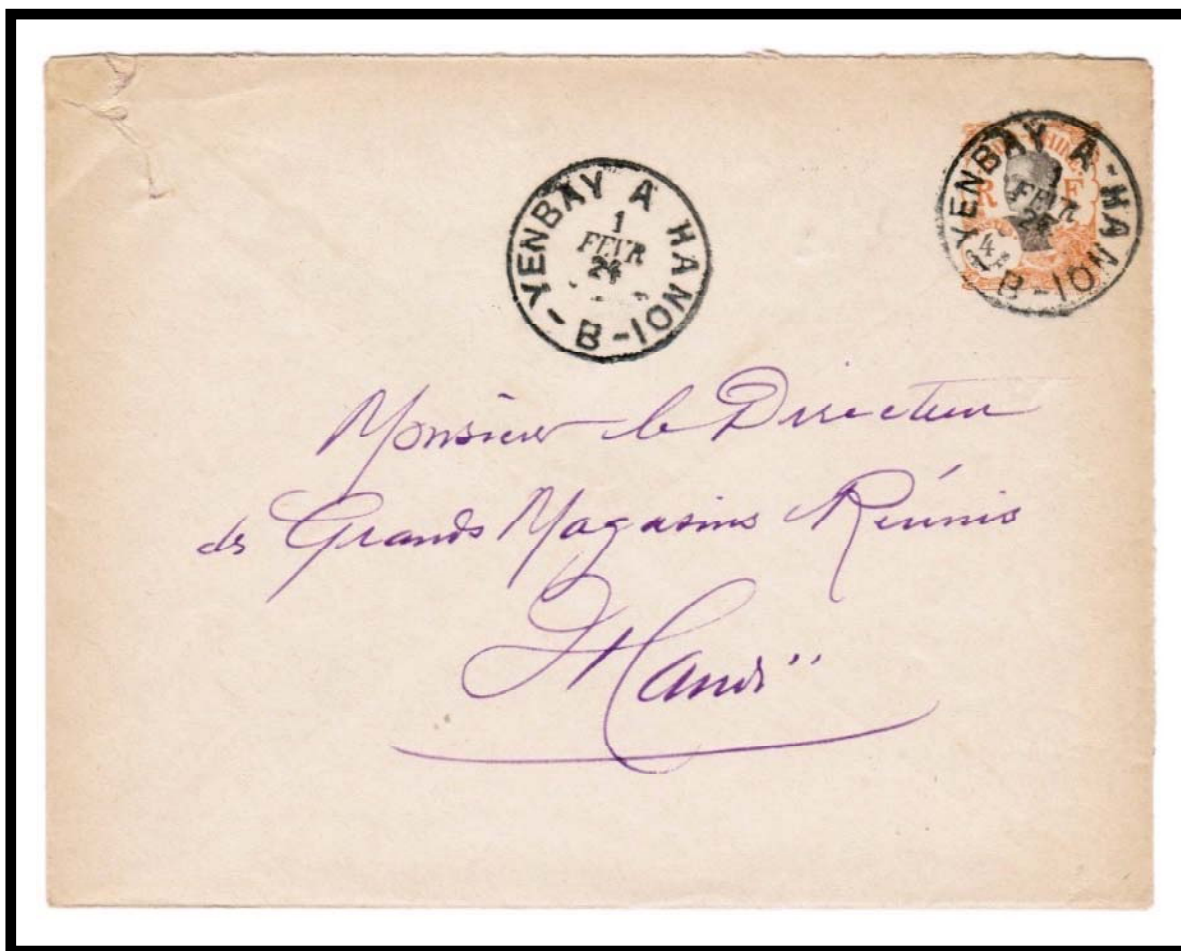 YENBAY A HANOI - B -
1
FEVR
24
YENBAY A - HANOI - B -
1
FEVR
INDO-CHINE
R F
4
Monsieur le Directeur
des Grands Magasins Réunis
Hanoï